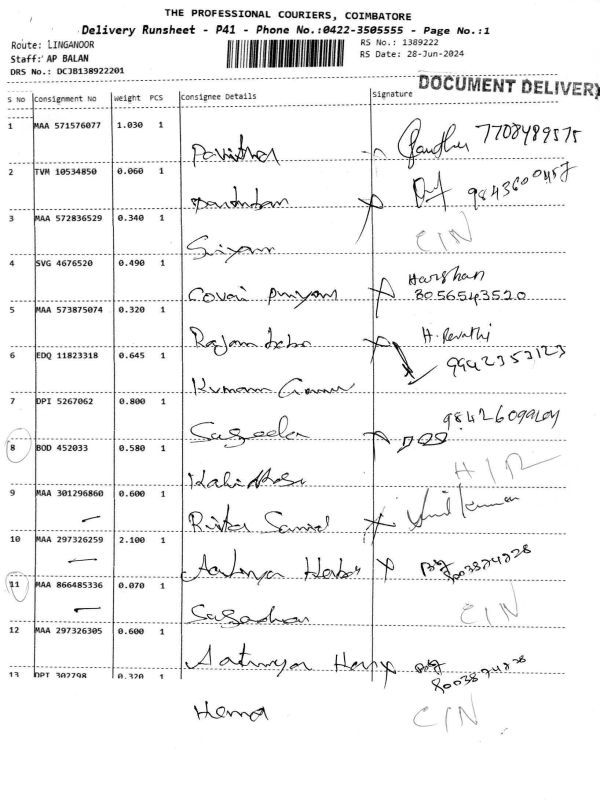 THE PROFESSIONAL COURIERS, COIMBATORE
Delivery Runsheet - P41 - Phone No.:0422-3505555 - Page No.:1
Route: LINGANOOR
RS No.: 1389222
Staff: AP BALAN
RS Date: 28-Jun-2024
DRS No.: DCJB138922201
DOCUMENT DELIVERY
S No Consignment No Weight PCS Consignee Details Signature
1 MAA 571576077 1.030 1
Pavithra 7708489575
2 TVM 10534850 0.060 1
9843600457
3 MAA 572836529 0.340 1
CIN
4 SVG 4676520 0.490 1
Covai Harshan
8056543520
5 MAA 573875074 0.320 1
H. Revathi
6 EDQ 11823318 0.645 1
9942353123
Kumaran
7 DPI 5267062 0.800 1
Sageela
8 BOD 452033 0.580 1
9 MAA 301296860 0.600 1
Kumar
10 MAA 297326259 2.100 1
8003874228
11 MAA 866485336 0.070 1
CIN
12 MAA 297326305 0.600 1
8003874228
13 DPT 302798 0.320 1
Hema CIN